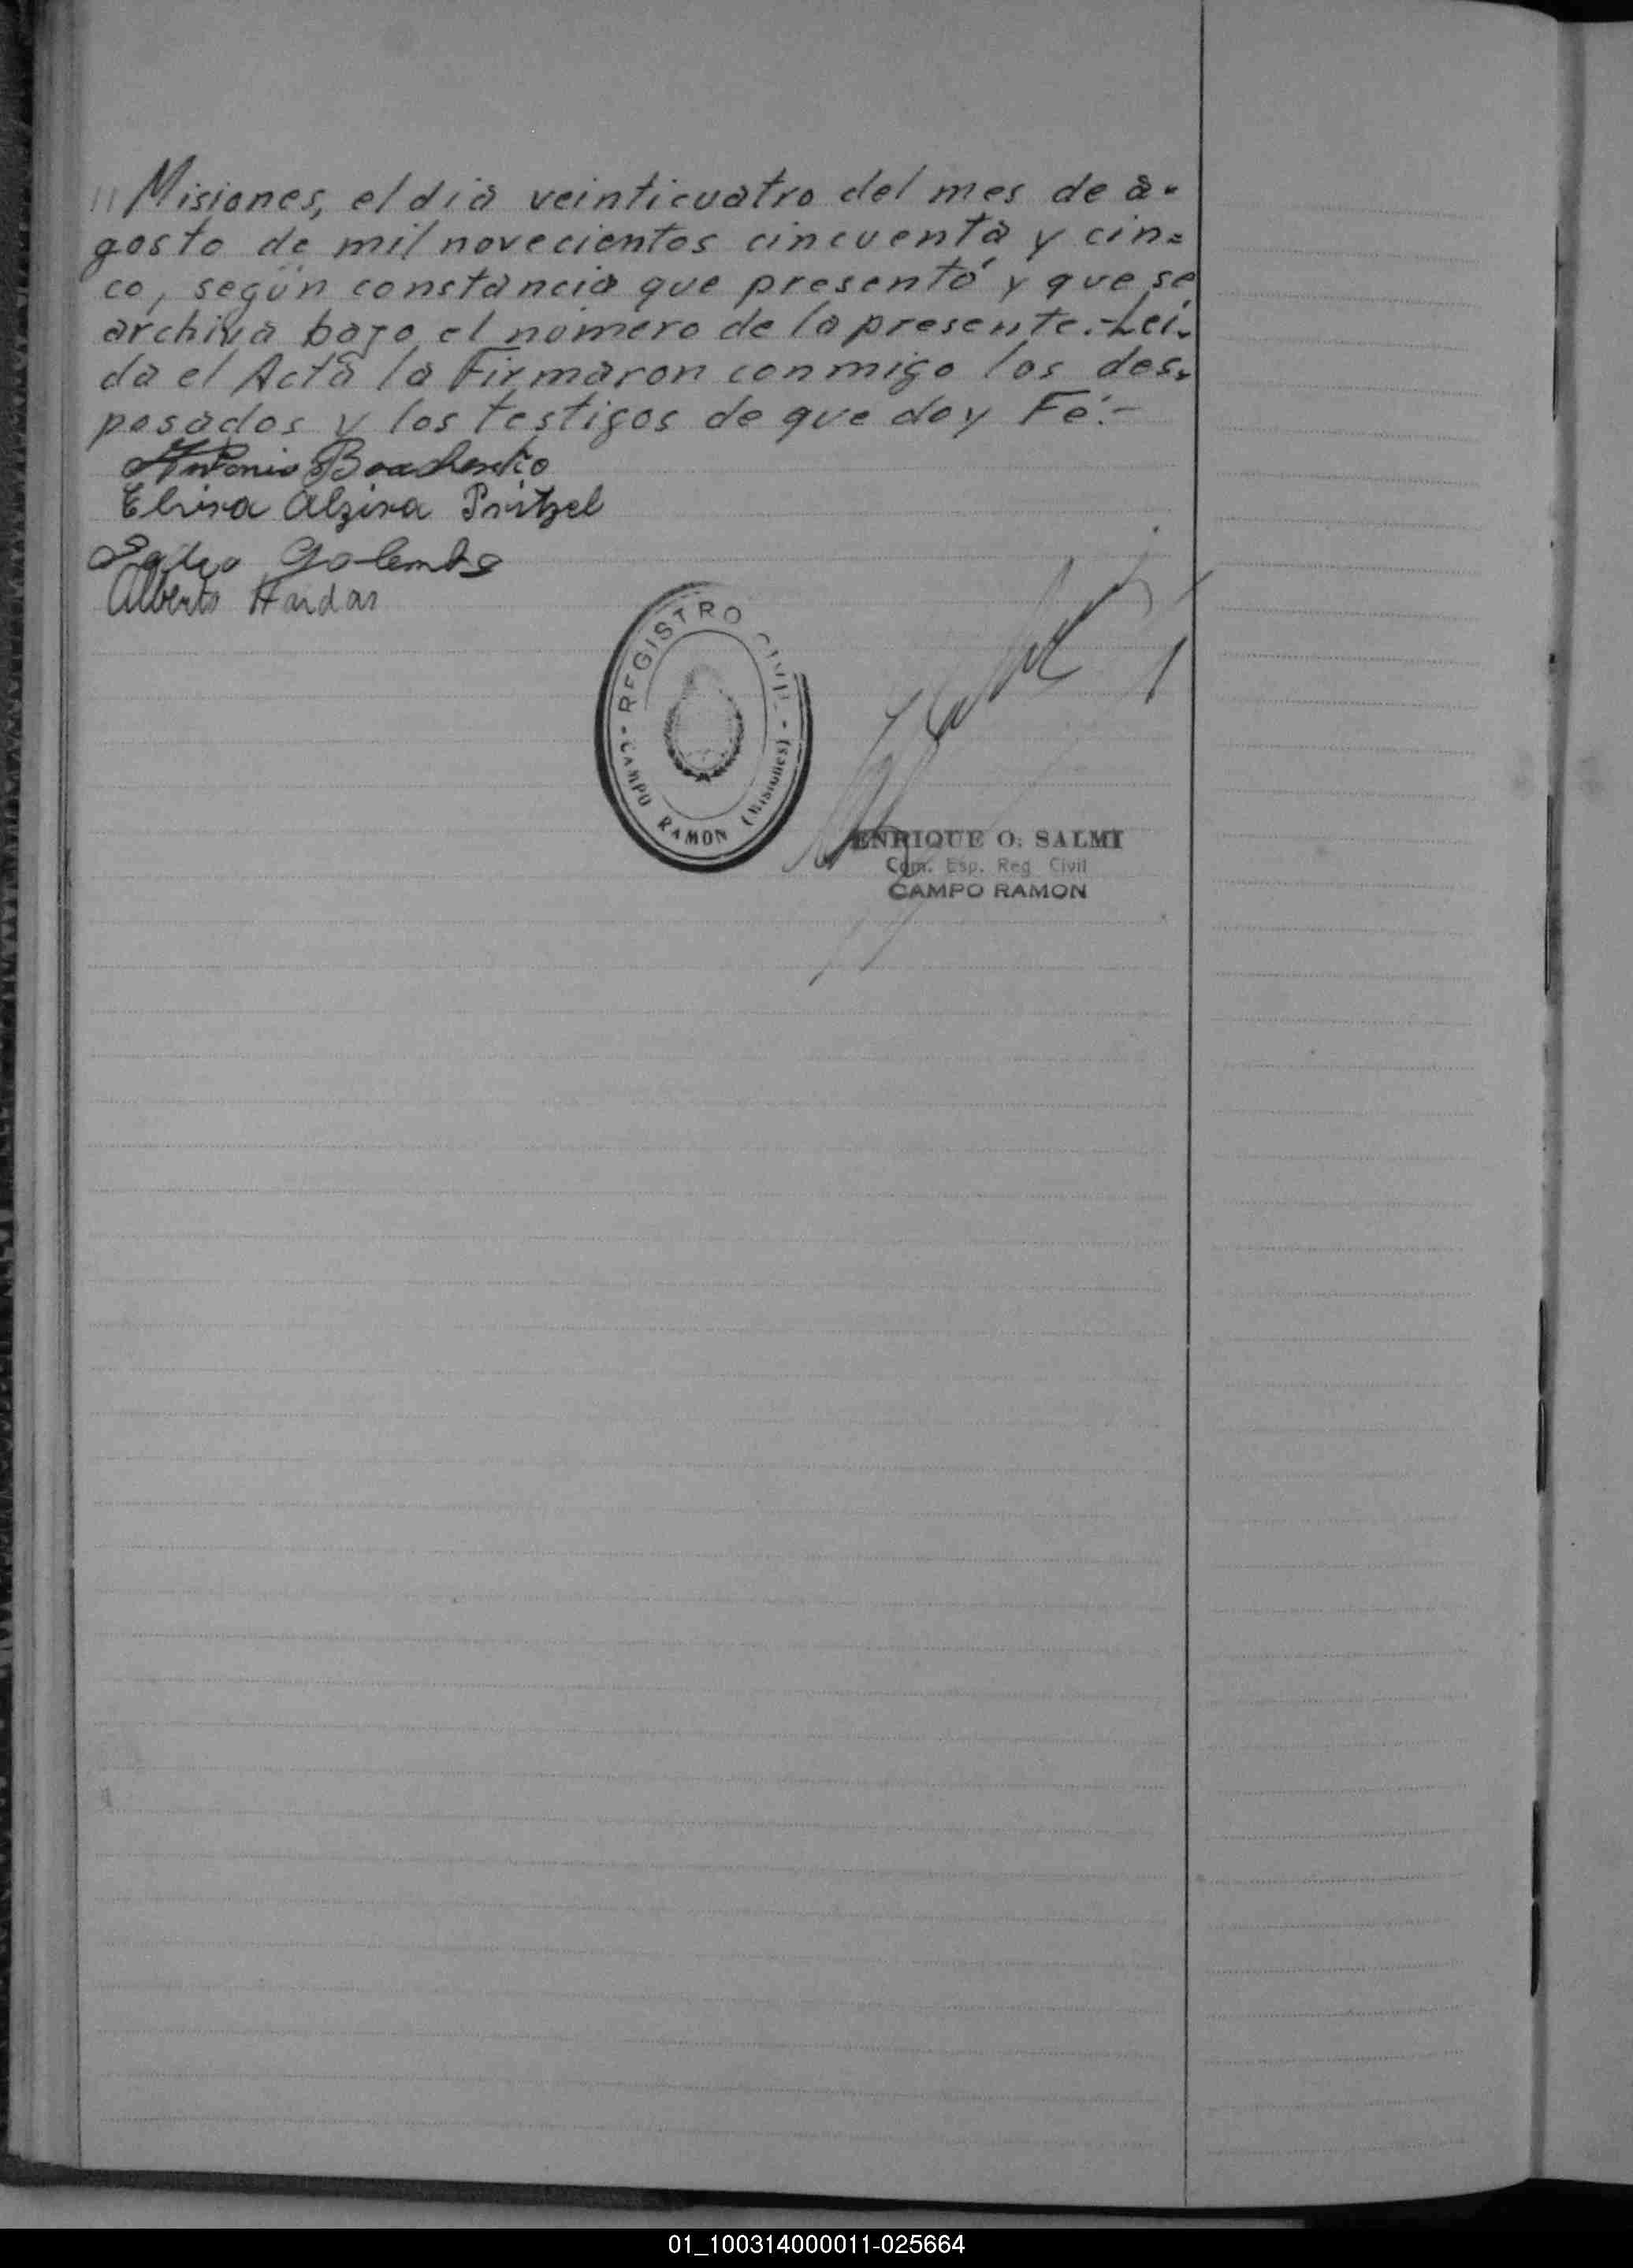 // Misiones, el dia veinticuatro del mes de a-
gosto de mil novecientos cincuenta y cin=
co, según constancia que presentó y que se
archiva bajo el número de la presente.-Leí-
da el Acta la Firmaron conmigo los des-
posados y los testigos de que doy Fé.-
Antonio
Elvira Alzira Pritzel
Golembe
Alberto Hardar
- REGISTRO CIVIL -
CAMPO RAMON (Misiones)
ENRIQUE O. SALMI
Com. Esp. Reg Civil
CAMPO RAMON
01_100314000011-025664